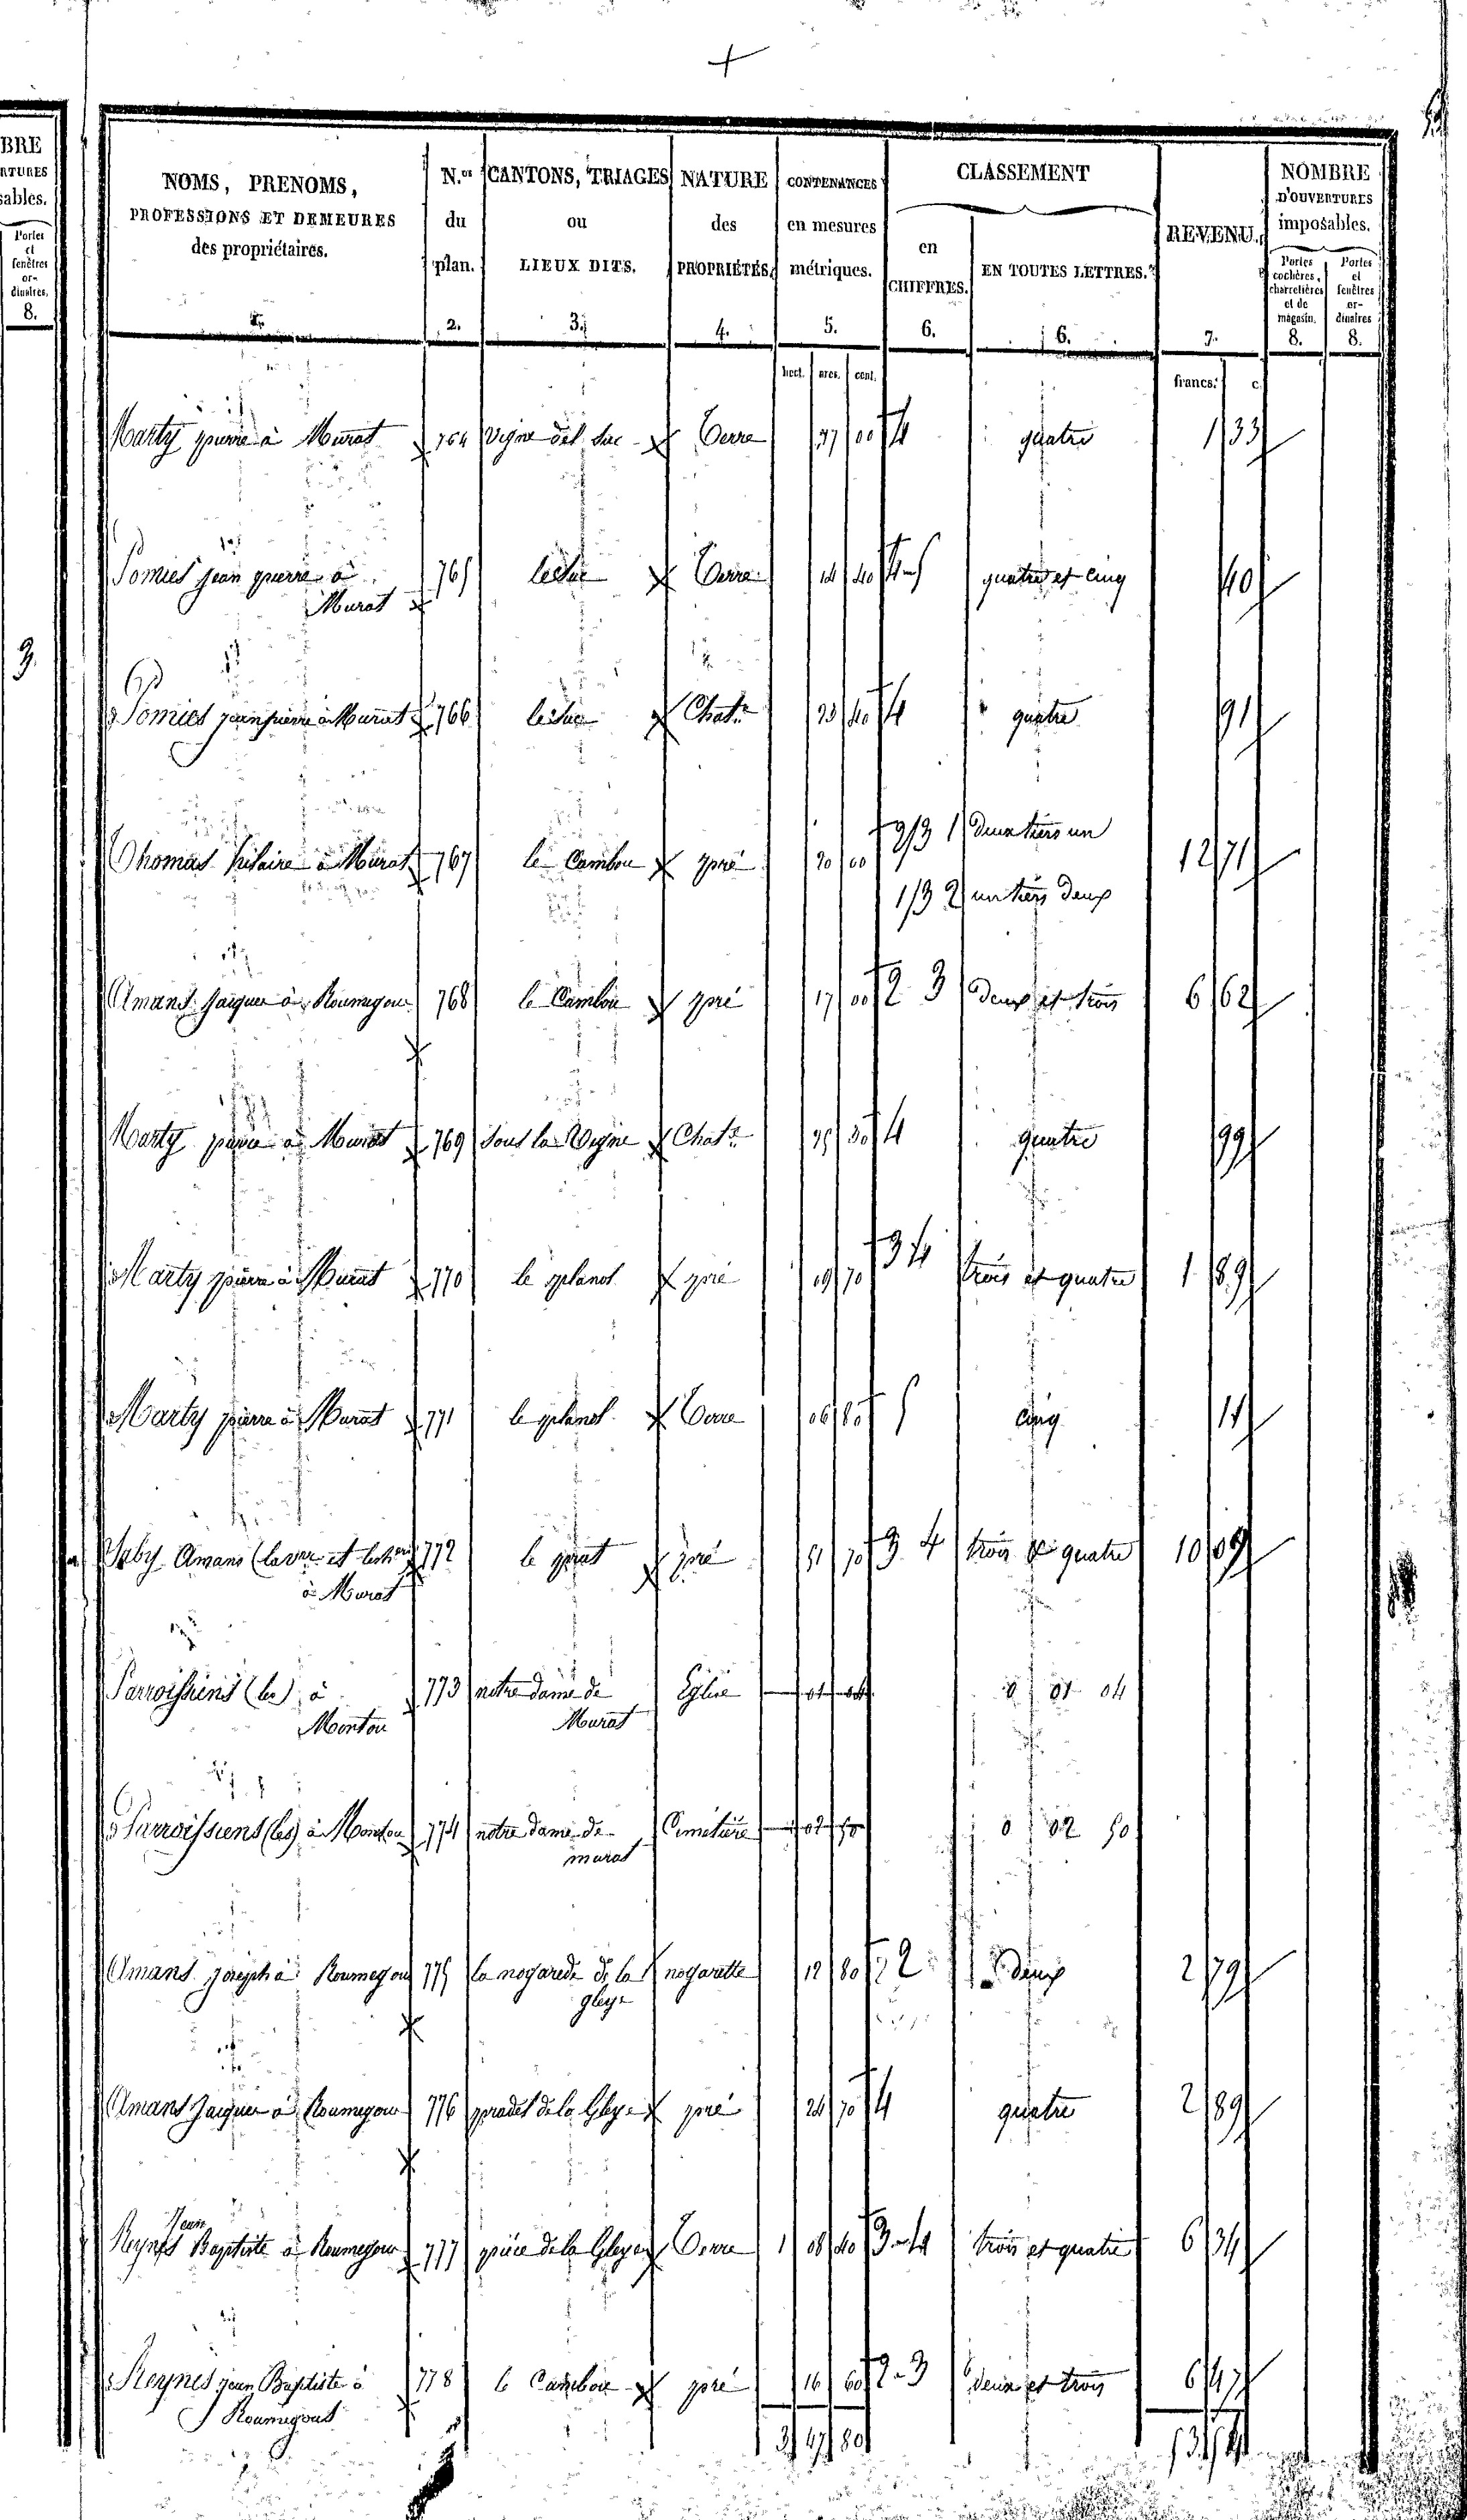 BRE
RTURES
sables.
Portes
et
fenêtres
or-
dinaires.
8.
NOMS, PRENOMS,
PROFESSIONS ET DEMEURES
des propriétaires.
N.os
du
plan.
2.
CANTONS, TRIAGES
ou
LIEUX DITS.
3.
NATURE
des
PROPRIÉTÉS.
4.
CONTENANCES
en mesures
métriques.
5.
CLASSEMENT
en
CHIFFRES.
6.
EN TOUTES LETTRES.
6.
REVENU.
7.
NOMBRE
D'OUVERTURES
imposables.
Portes
cochères,
charretières
et de
magasin.
8.
Portes
et
fenêtres
or-
dinaires
8.
hect. ares. cent.
francs. c.
Marty pierre à Murat 764 Vigne del suc Terre 37 00 4 quatre 1 33
Pomies jean pierre à 765 Terre 40 4-5 quatre et cinq 40
Murat
Pomies jean pierre à Murat 766 Chatre 40 4 quatre 91
Thomas hilaire à Murat 767 le Cambou pré 00 2/3 1 deux tiers un 12 71
1/3 2 un tiers deux
Amans Jacques à Roumegous 768 le Cambou pré 17 00 2 3 deux et trois 6 62
Marty pierre à Murat 769 Sous la Vigne Chatre 4 quatre 99
Marty pierre à Murat 770 le planol pré 19 70 3 4 trois et quatre 1 89
Marty pierre à Murat 771 le planol Terre 06 80 5 cinq 14
Amans 772 le prat pré 51 70 3 4 trois & quatre 10 09
à Murat
Parroissiens (les) à 773 notre dame de Eglise 01 04
Montou Murat
Parroissiens (les) à Montou 774 notre dame de Cimetière 0 02 50
murat
Amans joseph à Roumegous 775 la nogarede de la nogarette 12 80 2 deux 2 79
gleye
Amans Jacques à Roumegous 776 pradel de la Gleye pré 24 70 4 quatre 2 89
Jean
Reynes Baptiste à Roumegous 777 pièce de la Gleye Terre 1 08 40 3-4 trois et quatre 6 34
Reynes jean Baptiste à 778 le Cambou pré 16 60 2-3 deux et trois 6 47
Roumegous
3 47 80